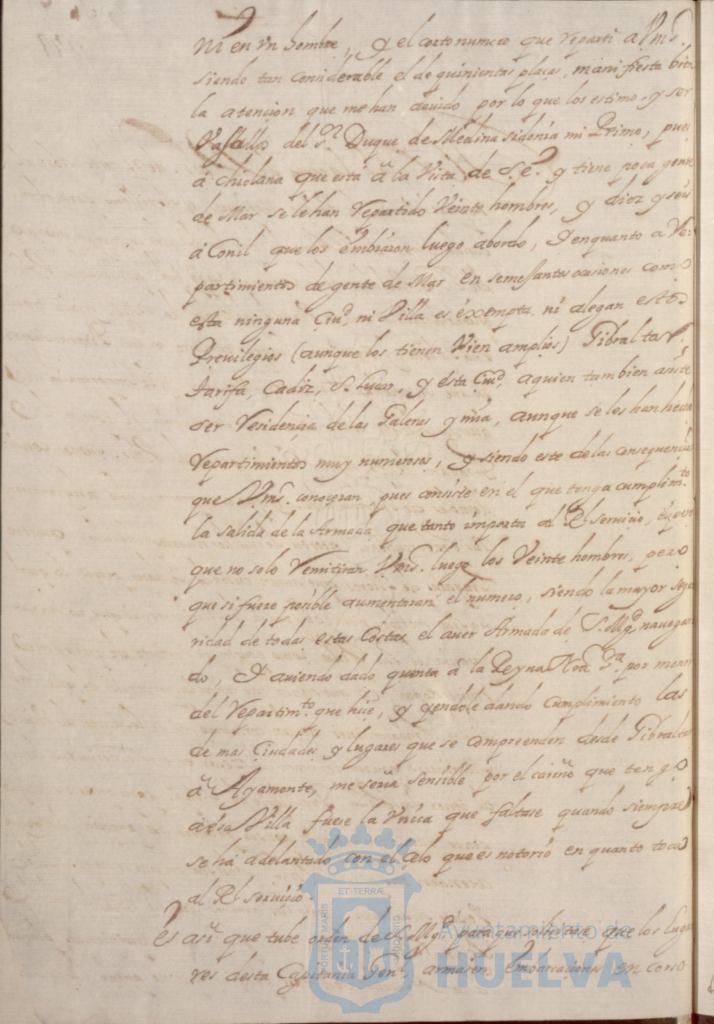 ni en vn hombre, y el corto numero que reparti a Vms.
siendo tan considerable el de quinientas plaças, manifiesta bien
la atencion que me han deuido por lo que los estimo, y ser
Vassallos del Sr. Duque de Medina sidonia mi Primo, pues
á chiclana que está á la Vista de S. E. y tiene poca gente
de Mar se le han repartido Veinte hombres, y diez y seis
á Conil que los embiaron luego abordo, y en quanto a Re-
partimientos de gente de Mar en semejantes ocasiones como
esta ninguna Ciud. ni Villa es exempta, ni alegan estos
Preuilegios (aunque los tienen Vien amplios) Gibraltar,
tarifa, Cadiz, S. Lucar, y esta Ciud. a quien tambien asiste
ser Residencia de las Galeras y mia, aunque se les han hecho
repartimientos muy numerosos, y siendo este de las consequencias
que Vms. conoceran, pues consiste en el que tenga cumplimto.
la salida de la Armada que tanto importa al Rl. seruicio, espero
que no solo remitiran Vms. luego los Veinte hombres, pero
que si fuere posible aumentaran el numero, siendo la mayor segu
ridad de todas estas Costas el auer Armada de S. Mgd. nauegan
do, y auiendo dado quenta á la Reyna Nra. Sra. por menor
del repartimto. que hise, y yendole dando cumplimiento las
de mas Ciudades y lugares que se compreenden desde Gibraltar
á Ayamonte, me seria sensible por el cariño que tengo
a esa Villa fuese la vnica que faltase quando siempre
se há adelantado con el celo que es notorio en quanto toca
al Rl. seruicio
Es asi que tube orden de S. Mgd. para que solicitase que los Luga
res desta Capitania Genl. armasen Embarcaciones en corso
ET TERRÆ
Ayuntamiento de
HUELVA